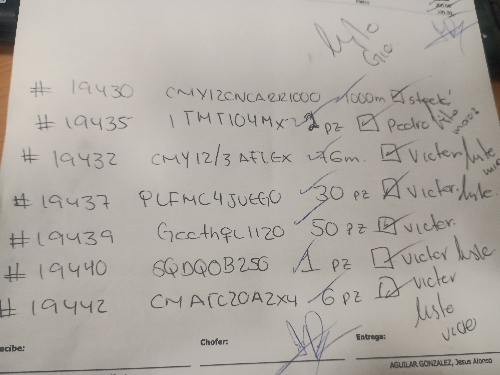 listo
# 19430 CMY12CNCARR1000 1000m stock
# 19435 1TMT104MX 2 pz Pedro listo
# 19432 CMY12/3 AFLEX 76m. Victor listo
# 19437 PLFMC4JUEGO 30 pz Victor. listo.
# 19439 50 pz Victor.
# 19440 SQDQOB250 1 pz Victor listo
# 19442 6 pz Victor
listo
ecibe: Chofer: Entrega:
AGUILAR GONZALEZ, Jesus Alonso